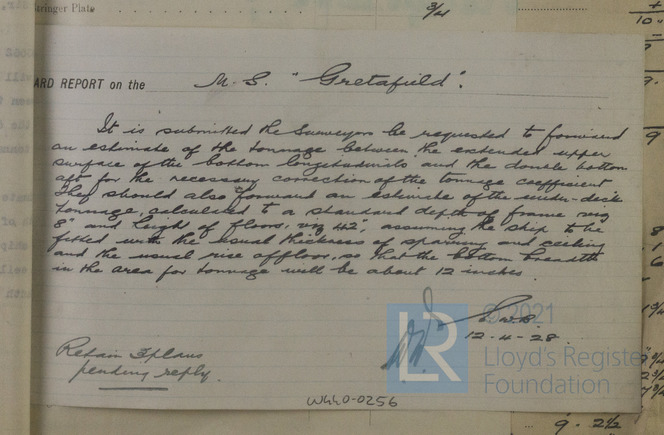 Stringer Plate . . . . . . . . . . . . . . . . 3/4
ARD REPORT on the M. S. "Gretafield".
It is submitted the Surveyors be requested to forward
an estimate of the tonnage between the extended upper
surface of the bottom longitudinals and the double bottom
aft for the necessary correction of the tonnage coefficient
They should also forward an estimate of the under-deck
tonnage calculated to a standard depth of frame viz
8" and height of floors, viz 42", assuming the ship to be
fitted with the usual thickness of sparring and ceiling
and the usual rise of floor, so that the bottom breadth
in the area for tonnage will be about 12 inches
L.W.B.
12-4-28.
Retain 3 plans
pending reply.
W440-0256
© 2021
LR
Lloyd's Register
Foundation
9. 2 1/2